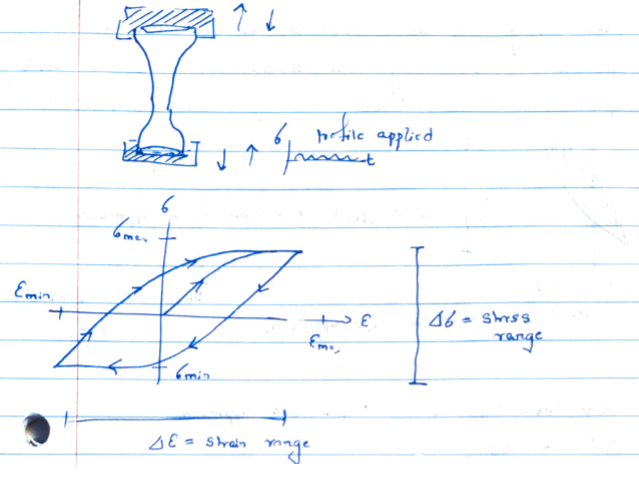 σ profile applied
t
σ
σmax
εmin
ε
εmax
Δσ = stress
range
σmin
Δε = strain range